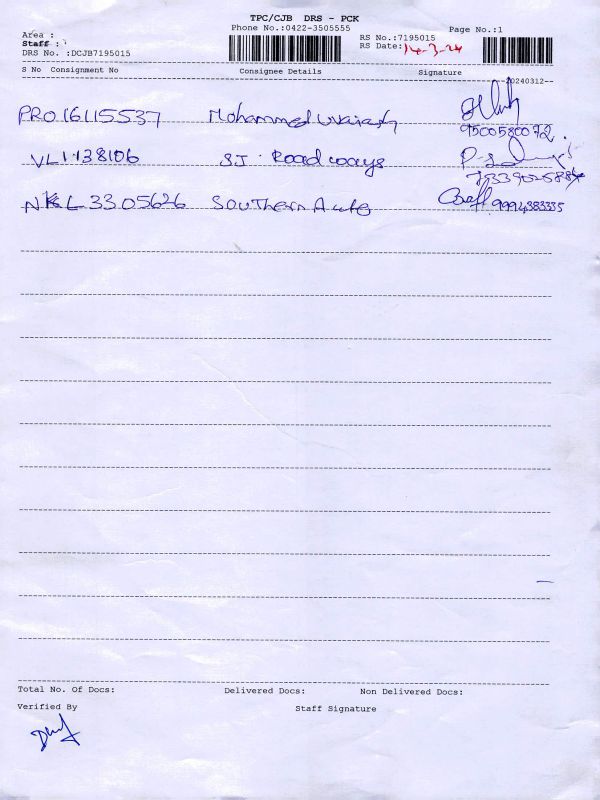 TPC/CJB DRS - PCK
Phone No.:0422-3505555
Page No.:1
Area :
RS No.:7195015
Staff :
RS Date: 14-3-24
DRS No. :DCJB7195015
S No Consignment No Consignee Details Signature
20240312
PRO16115537 Mohammed
9500580072.
VL1138106 SJ Roadways
NKL3305626 Southern Auto 9994383335
Total No. Of Docs: Delivered Docs: Non Delivered Docs:
Verified By Staff Signature